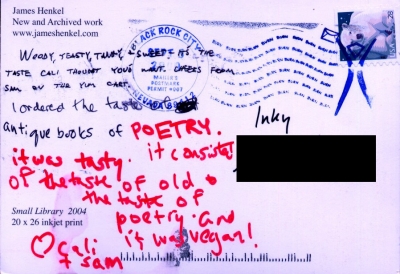 James Henkel
New and Archived work
www.jameshenkel.com
BLACK ROCK CITY
MAILER'S
POSTMARK
PERMIT #007
NEVADA
28
WOODY, TEASTY, TANGY + SWEET IT'S THE
TASTE CALI THOUGHT YOU'D WANT. CHEERS FROM
SAM ON THE YUM CART
I ordered the taste of
antique books of POETRY.
it was tasty. it consisted
of the taste of old &
the taste of
poetry. And
it was vegan!
Cali
+ Sam
Inky
Small Library 2004
20 x 26 inkjet print